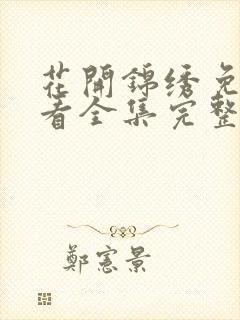 花開錦绣免
看全集完整
鄭憲景